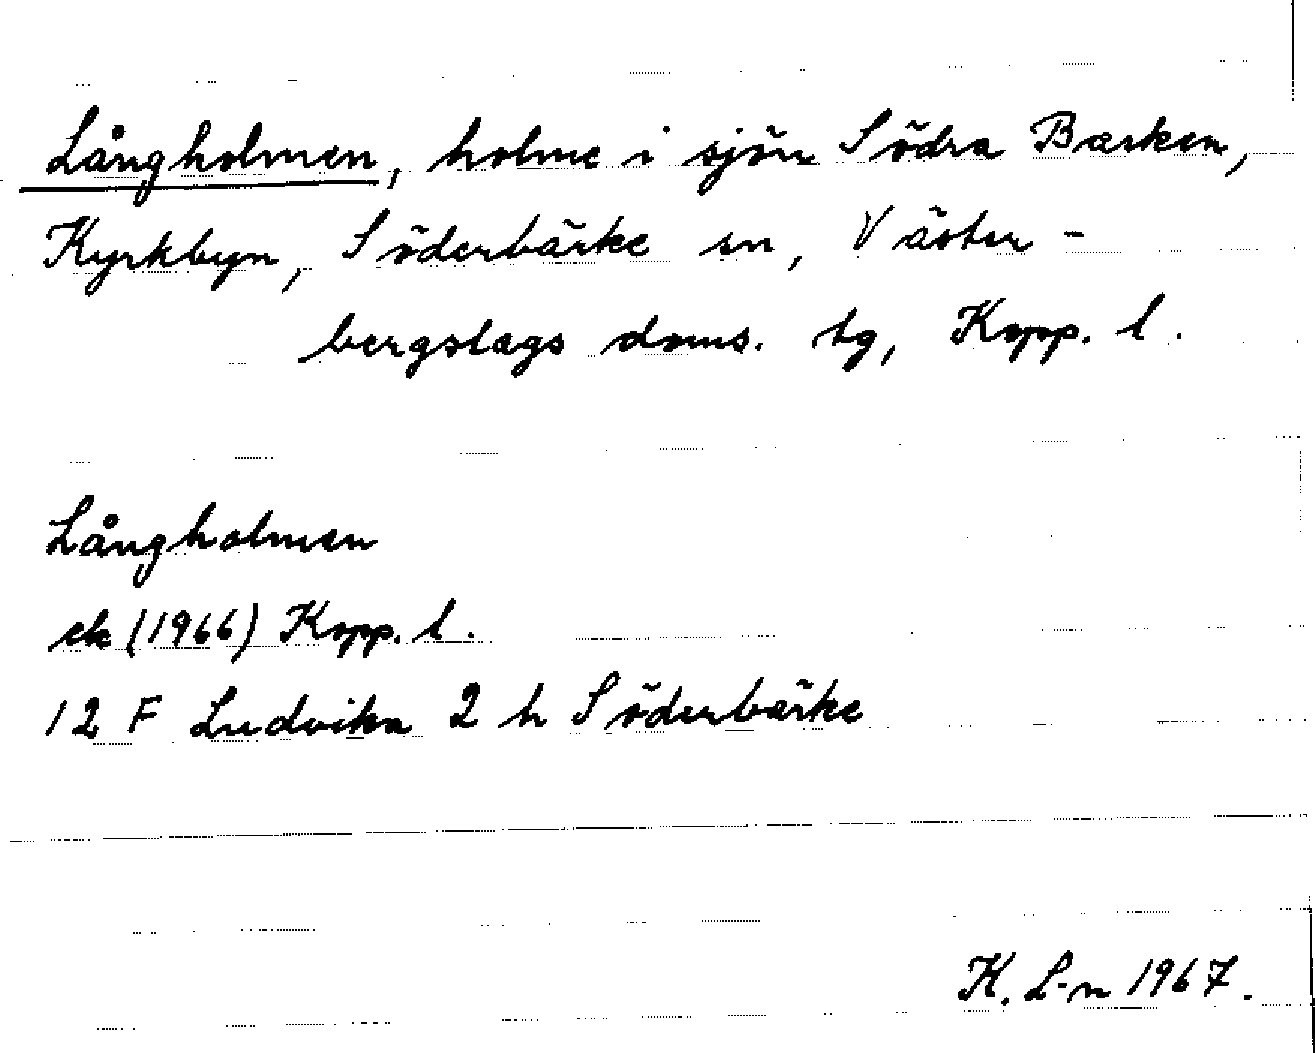 Långholmen, holme i sjön Södra Barken,
Kyrkbyn, Söderbärke sn, Väster-
bergslags doms. tg, Kopp. l.
Långholmen
ek (1966) Kopp. l.
12 F Ludvika 2 h Söderbärke
K. L-n 1967.